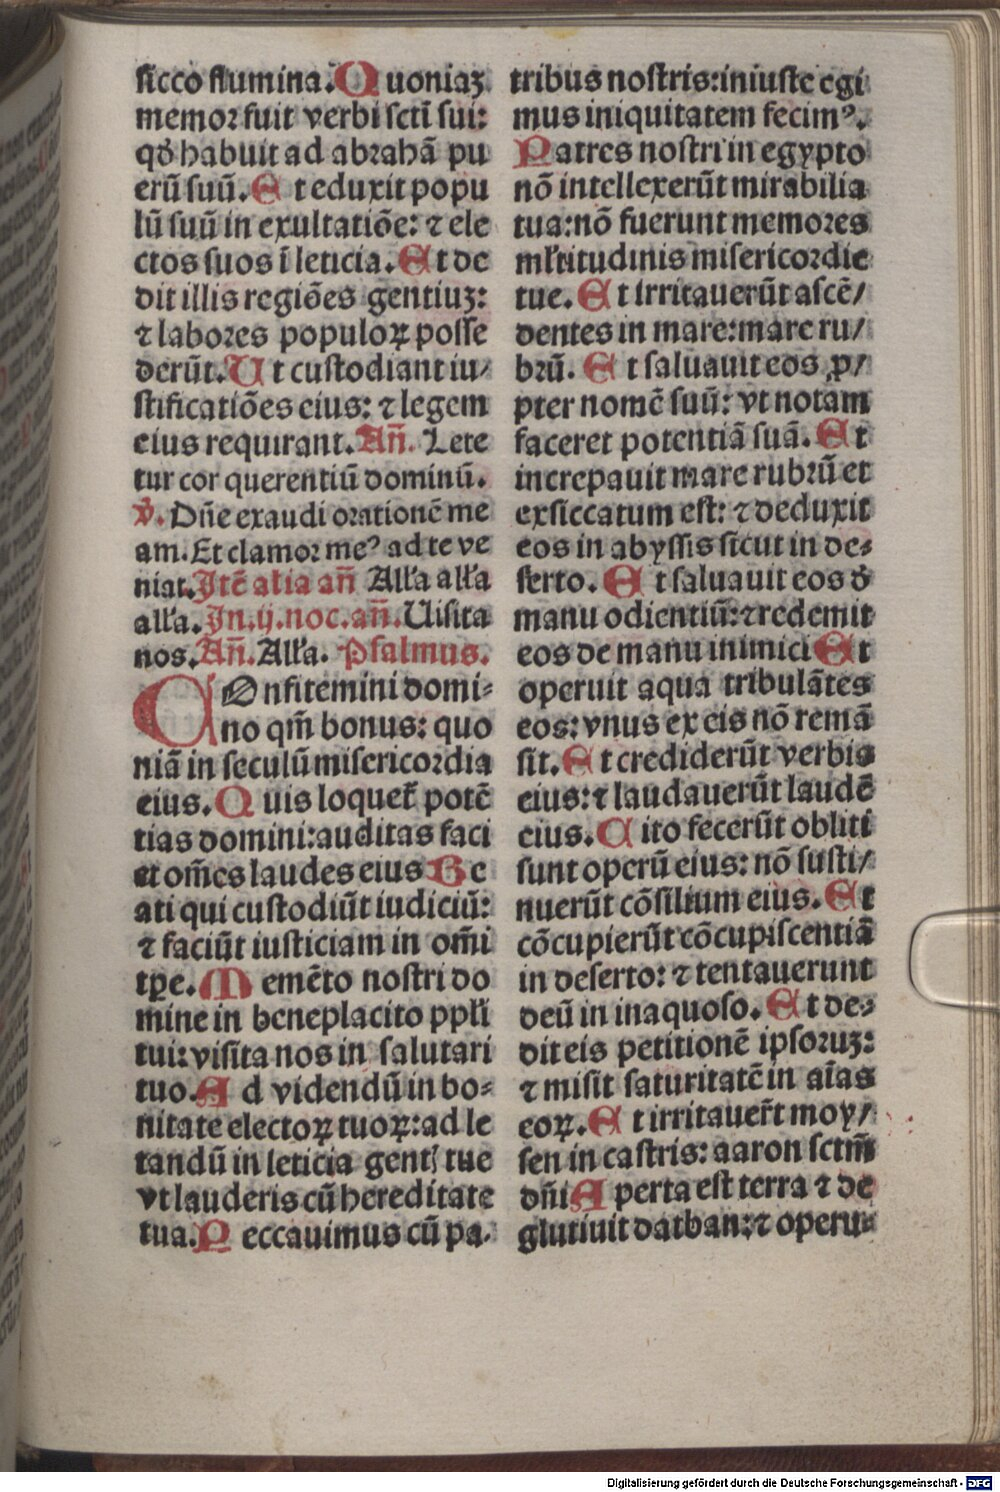 sicco flumina. Quoniaꝫ
memor fuit verbi sctī sui:
qđ habuit ad abrahā pu
erū suū. Et eduxit popu
lū suū in exultatiōe: ⁊ ele
ctos suos ī leticia. Et de
dit illis regiōes gentiuꝫ:
⁊ labores populoꝝ posse
derūt. Ut custodiant iu⸗
stificatiōes eius: ⁊ legem
eius requirant. Añ. Lete
tur cor querentiū dominū.
v̓. Dñe exaudi orationē me
am. Et clamor meꝰ ad te ve
niat. Itē alia añ Alla alla
alla. In.ij.noc.añ. Uisita
nos. Añ. Alla. Psalmus.
COnfitemini domi⸗
no qm̄ bonus: quo
niā in seculū misericordia
eius. Quis loquet̄ potē
tias domini: auditas faci
et om̄es laudes eius Be
ati qui custodiūt iudiciū:
⁊ faciūt iusticiam in om̄i
tꝑe. Memēto nostri do
mine in beneplacito ppl̓i
tui: visita nos in salutari
tuo. Ad videndū in bo⸗
nitate electoꝝ tuoꝝ: ad le
tandū in leticia gentꝭ tue
vt lauderis cū hereditate
tua. Peccauimus cū pa⸗
tribus nostris: iniuste egi
mus iniquitatem fecimꝰ.
Patres nostri in egypto
nō intellexerūt mirabilia
tua: nō fuerunt memores
ml̓titudinis misericordie
tue. Et irritauerūt ascē/
dentes in mare: mare ru/
brū. Et saluauit eos ꝓ/
pter nomē suū: vt notam
faceret potentiā suā. Et
increpauit mare rubrū et
exsiccatum est: ⁊ deduxit
eos in abyssis sicut in de⸗
serto. Et saluauit eos đ
manu odientiū: ⁊ redemit
eos de manu inimici Et
operuit aqua tribulātes
eos: vnus ex eis nō remā
sit. Et crediderūt verbis
eius: ⁊ laudauerūt laudē
eius. Cito fecerūt obliti
sunt operū eius: nō susti/
nuerūt cōsilium eius. Et
cōcupierūt cōcupiscentiā
in deserto: ⁊ tentauerunt
deū in inaquoso. Et de⸗
dit eis petitionē ipsoruꝫ:
⁊ misit saturitatē in aīas
eoꝝ. Et irritauer̄t moy/
sen in castris: aaron sctm̄
dñi Aperta est terra ⁊ de
glutiuit dathan: ⁊ operu⸗
Digitalisierung gefördert durch die Deutsche Forschungsgemeinschaft - DFG